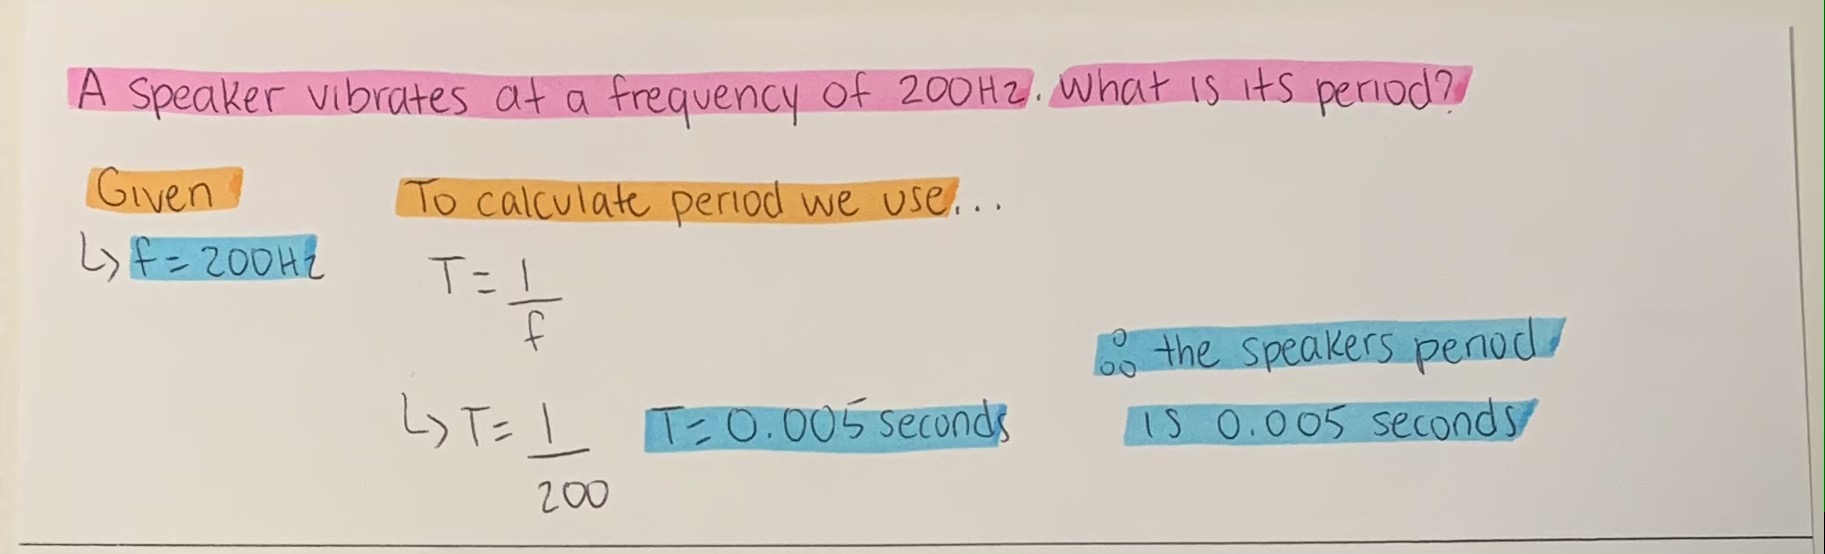 A speaker vibrates at a frequency of 200Hz. What is its period?
Given
↳ f = 200Hz
To calculate period we use...
T = 1/f
↳ T = 1/200
T = 0.005 seconds
∴ the speakers period
is 0.005 seconds